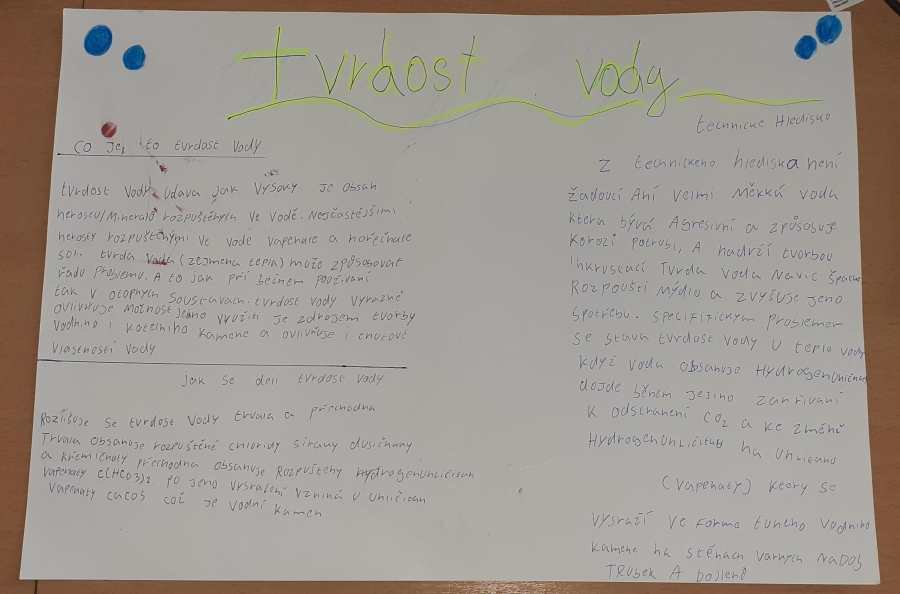 tvrdost vody
co je to tvrdost vody
tvrdost vody udava jak vysoky je obsah
nerostů/minerálů rozpuštěných ve vodě. nejčastějšími
nerosty rozpuštěnými ve vodě vapenate a hořečnate
soli. tvrda voda (zejmena tepla) může způsobovat
řadu problemu. A to jak při běžnem použivaní
tak v otopnych soustavach. tvrdost vody vyrazně
ovlivňuje možnost jeho využití je zdrojem tvorby
vodniho i kotelniho kamene a ovlivňuje i chuťove
vlastnosti vody
jak se deli tvrdost vody
Rozlišuje se tvrdost vody trvala a přechodna
Trvala obsahuje rozpuštěné chloridy sirany dusičnany
a křemičitaty přechodna obsahuje Rozpuštěny hydrogenuhličitan
vapenaty c(HCO3)2 po jeho vysražení vzniká u uhličitan
vapenaty caco3 což je vodni kamen
technicke Hledisko
z technickeho hlediska není
žadoucí Ani velmi měkká voda
ktera bývá Agresivní a způsobuje
korozi potrubi, A nadrží tvorbou
inkrustací Tvrda voda navic špatně
Rozpouští mýdlo a zvyšuje jeho
spotřebu. specifickym problemem
se stava tvrdost vody u teple vody
když voda obsahuje Hydrogenuhličitan
dojde během jejího zahřivaní
k odstranení CO2 a ke změně
Hydrogenuhličitanu na uhličitano
(vapenaty) ktery se
vysraží ve formě tuheho vodniho
kamene na stěnach varnych nadob
TRubek A bojlerů